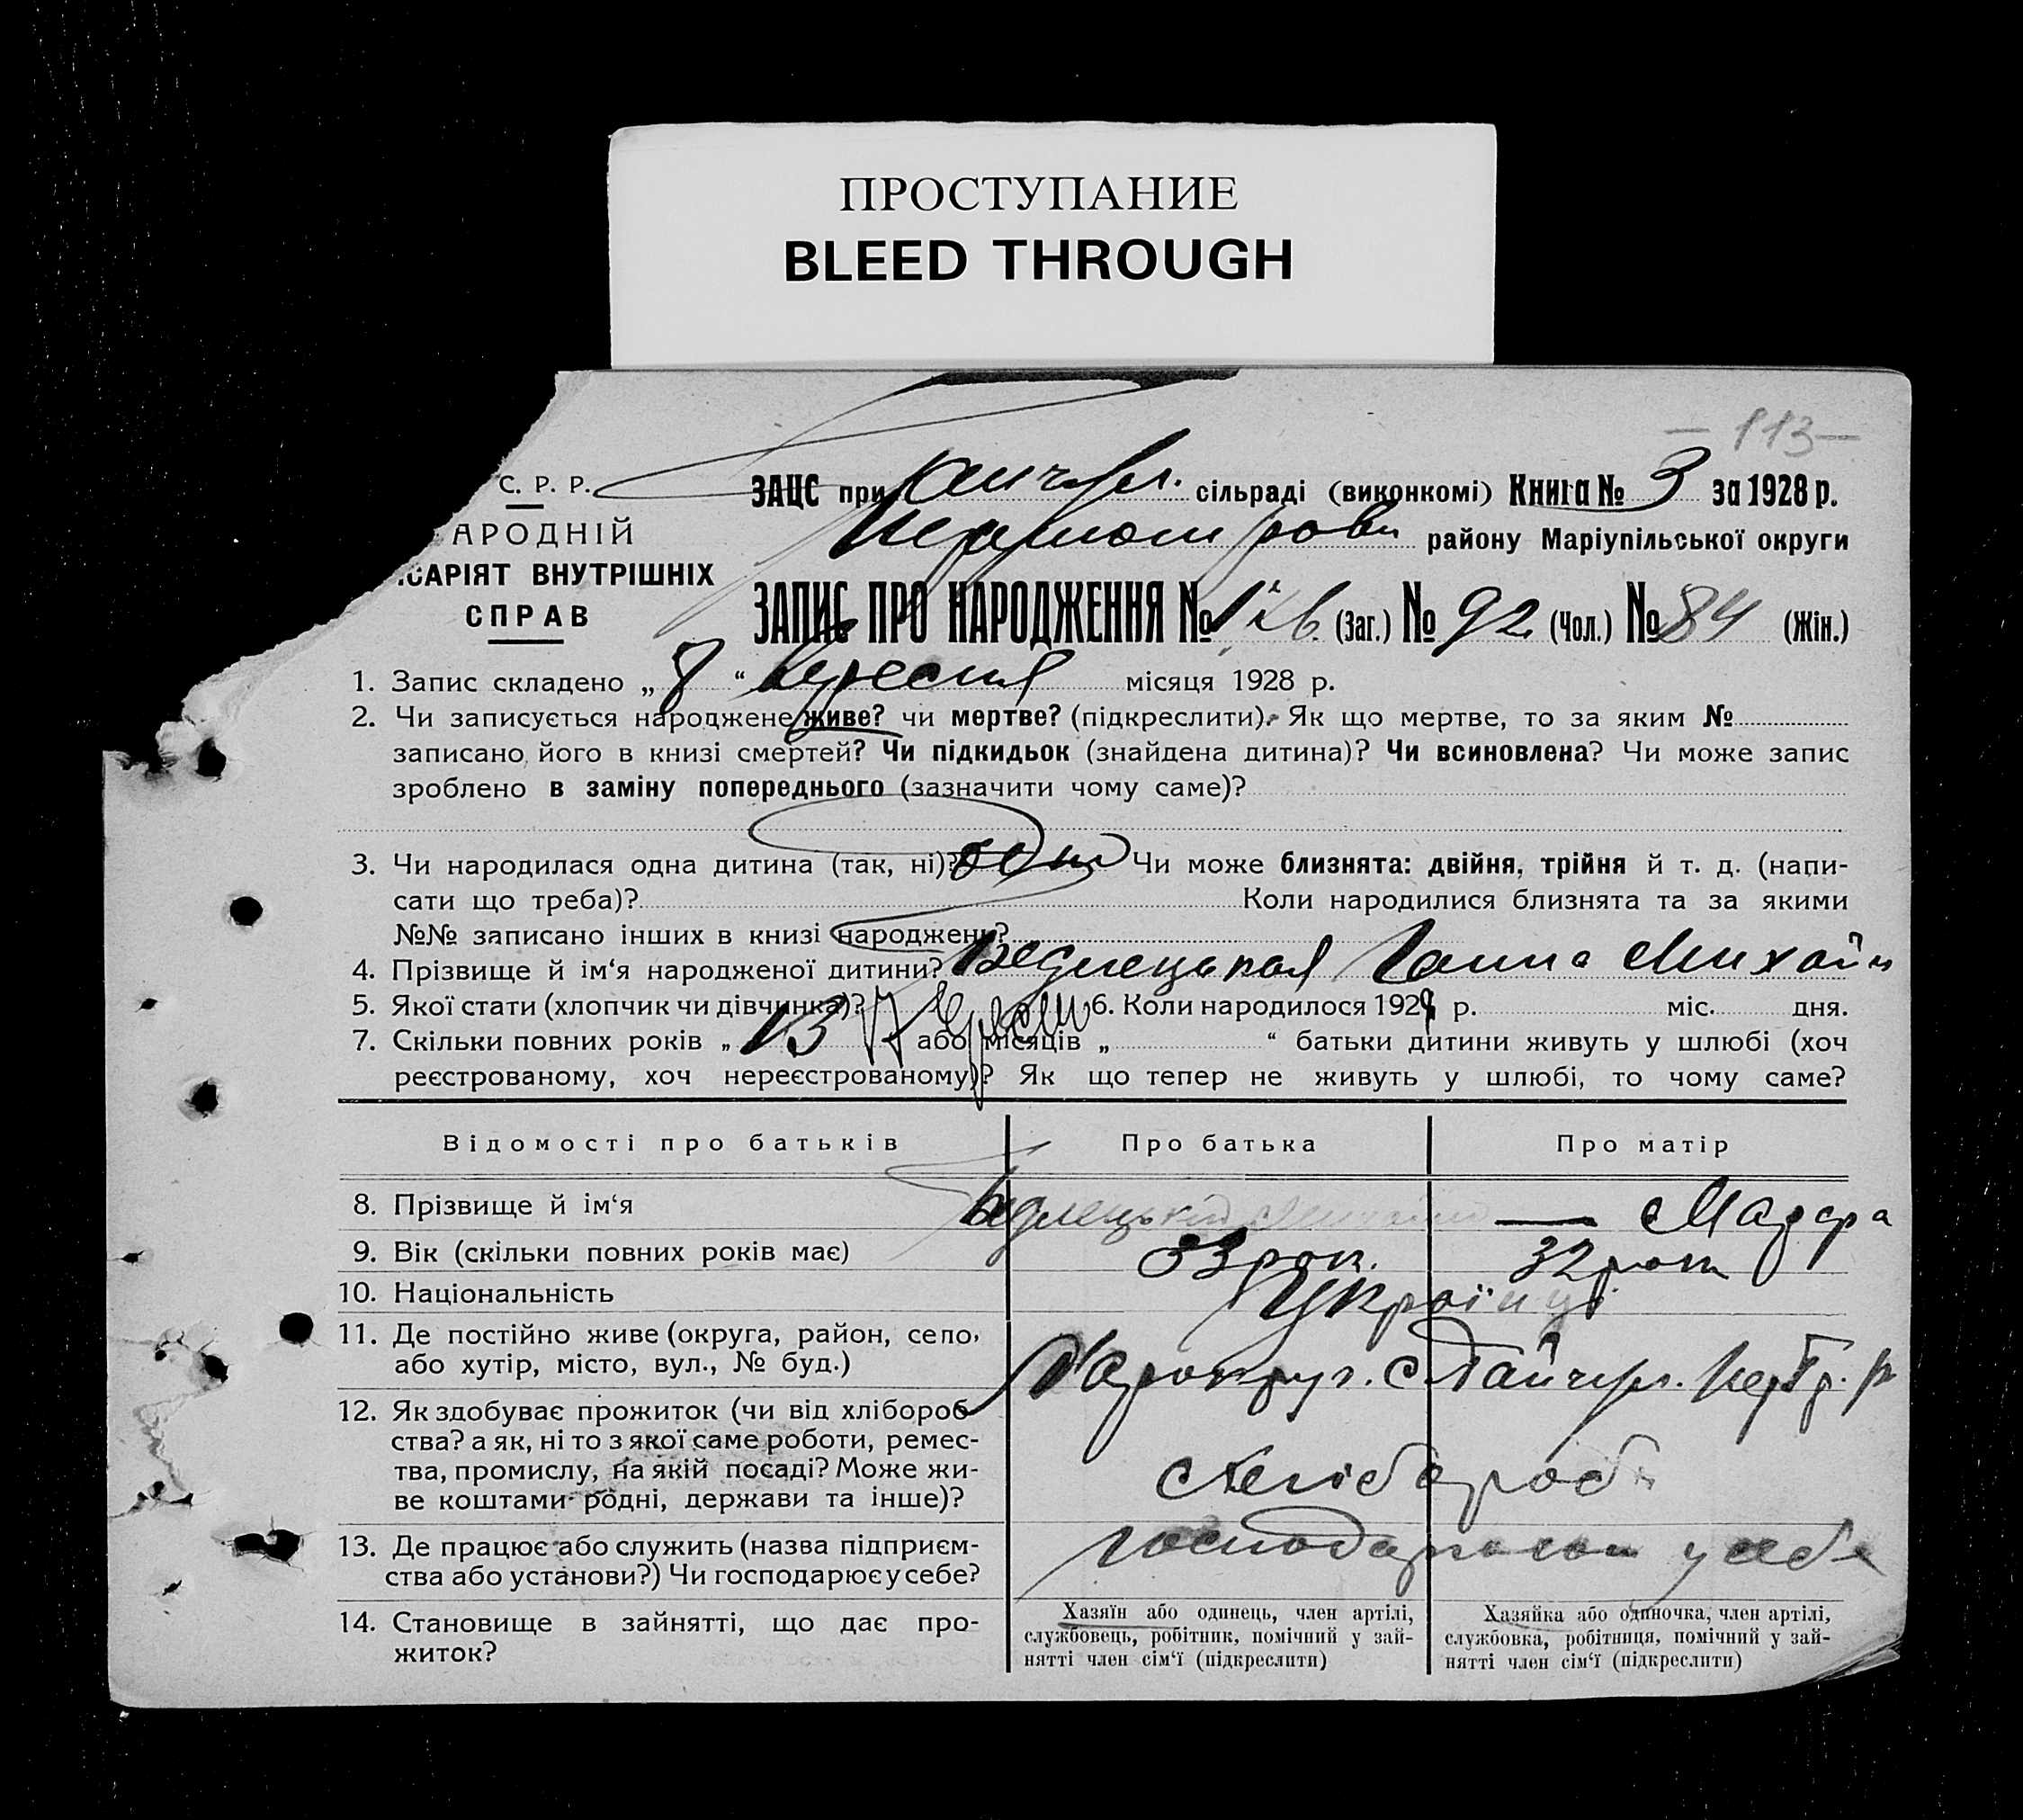 ПРОСТУПАНИЕ
BLEED THROUGH
— 113 —
С. Р. Р.
ЗАЦС при сільраді (виконкомі) Книга № 3 за 1928 р.
АРОДНІЙ
району Маріупільської округи
САРІЯТ ВНУТРІШНІХ
СПРАВ
ЗАПИС ПРО НАРОДЖЕННЯ № (Заг.) № 92 (Чол.) № 84 (Жін.)
1. Запис складено „ 8 “ вересня місяця 1928 р.
2. Чи записується народжене живе? чи мертве? (підкреслити). Як що мертве, то за яким №
записано його в книзі смертей? Чи підкидьок (знайдена дитина)? Чи всиновлена? Чи може запис
зроблено в заміну попереднього (зазначити чому саме)?
3. Чи народилася одна дитина (так, ні)? Чи може близнята: двійня, трійня й т. д. (напи-
сати що треба)? Коли народилися близнята та за якими
№№ записано інших в книзі народжень?
4. Прізвище й ім‘я народженої дитини? Ганна Михайл
5. Якої стати (хлопчик чи дівчинка)? 6. Коли народилося 1928 р. міс. дня.
7. Скільки повних років „ 13 або місяців „ “ батьки дитини живуть у шлюбі (хоч
реєстрованому, хоч нереєстрованому)? Як що тепер не живуть у шлюбі, то чому саме?
Відомості про батьків Про батька Про матір
8. Прізвище й ім‘я — Марфа
9. Вік (скільки повних років має) 33 рок. 32 роки
10. Національність Українці
11. Де постійно живе (округа, район, село,
або хутір, місто, вул., № буд.)
12. Як здобуває прожиток (чи від хлібороб-
ства? а як, ні то з якої саме роботи, ремес-
тва, промислу, на якій посаді? Може жи-
ве коштами родні, держави та інше)?
13. Де працює або служить (назва підприєм-
ства або установи?) Чи господарює у себе?
14. Становище в зайнятті, що дає про-
житок?
Хазяїн або одинець, член артілі,
службовець, робітник, помічний у зай-
нятті член сім‘ї (підкреслити)
Хазяйка або одиночка, член артілі,
службовка, робітниця, помічний у зай-
нятті член сім‘ї (підкреслити)